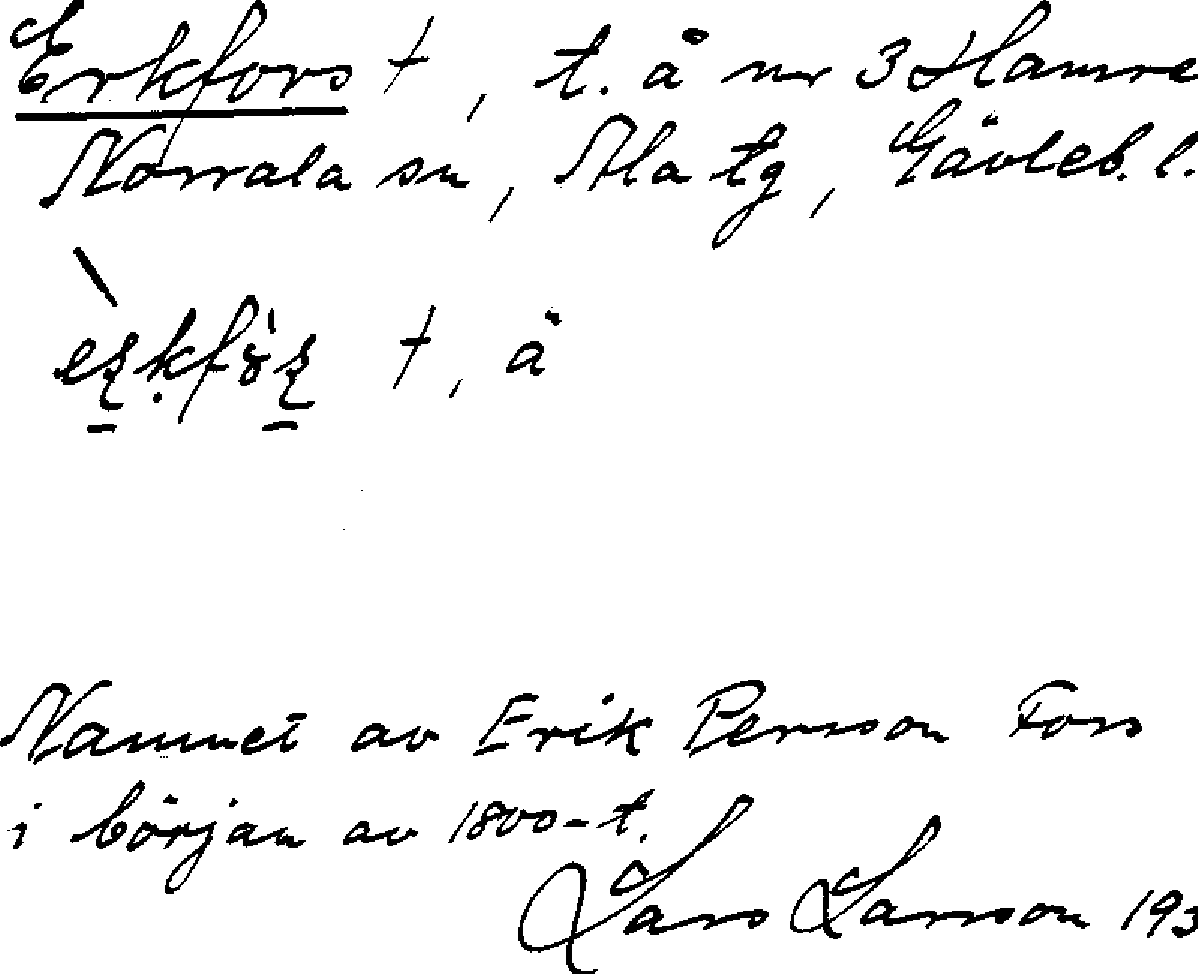 Erkfors †, t. å nr 3 Hamre
Norrala sn, Ala tg, Gävleb. l.
†, å
Namnet av Erik Persson Fors
i början av 1800-t.
Lars Larsson 193